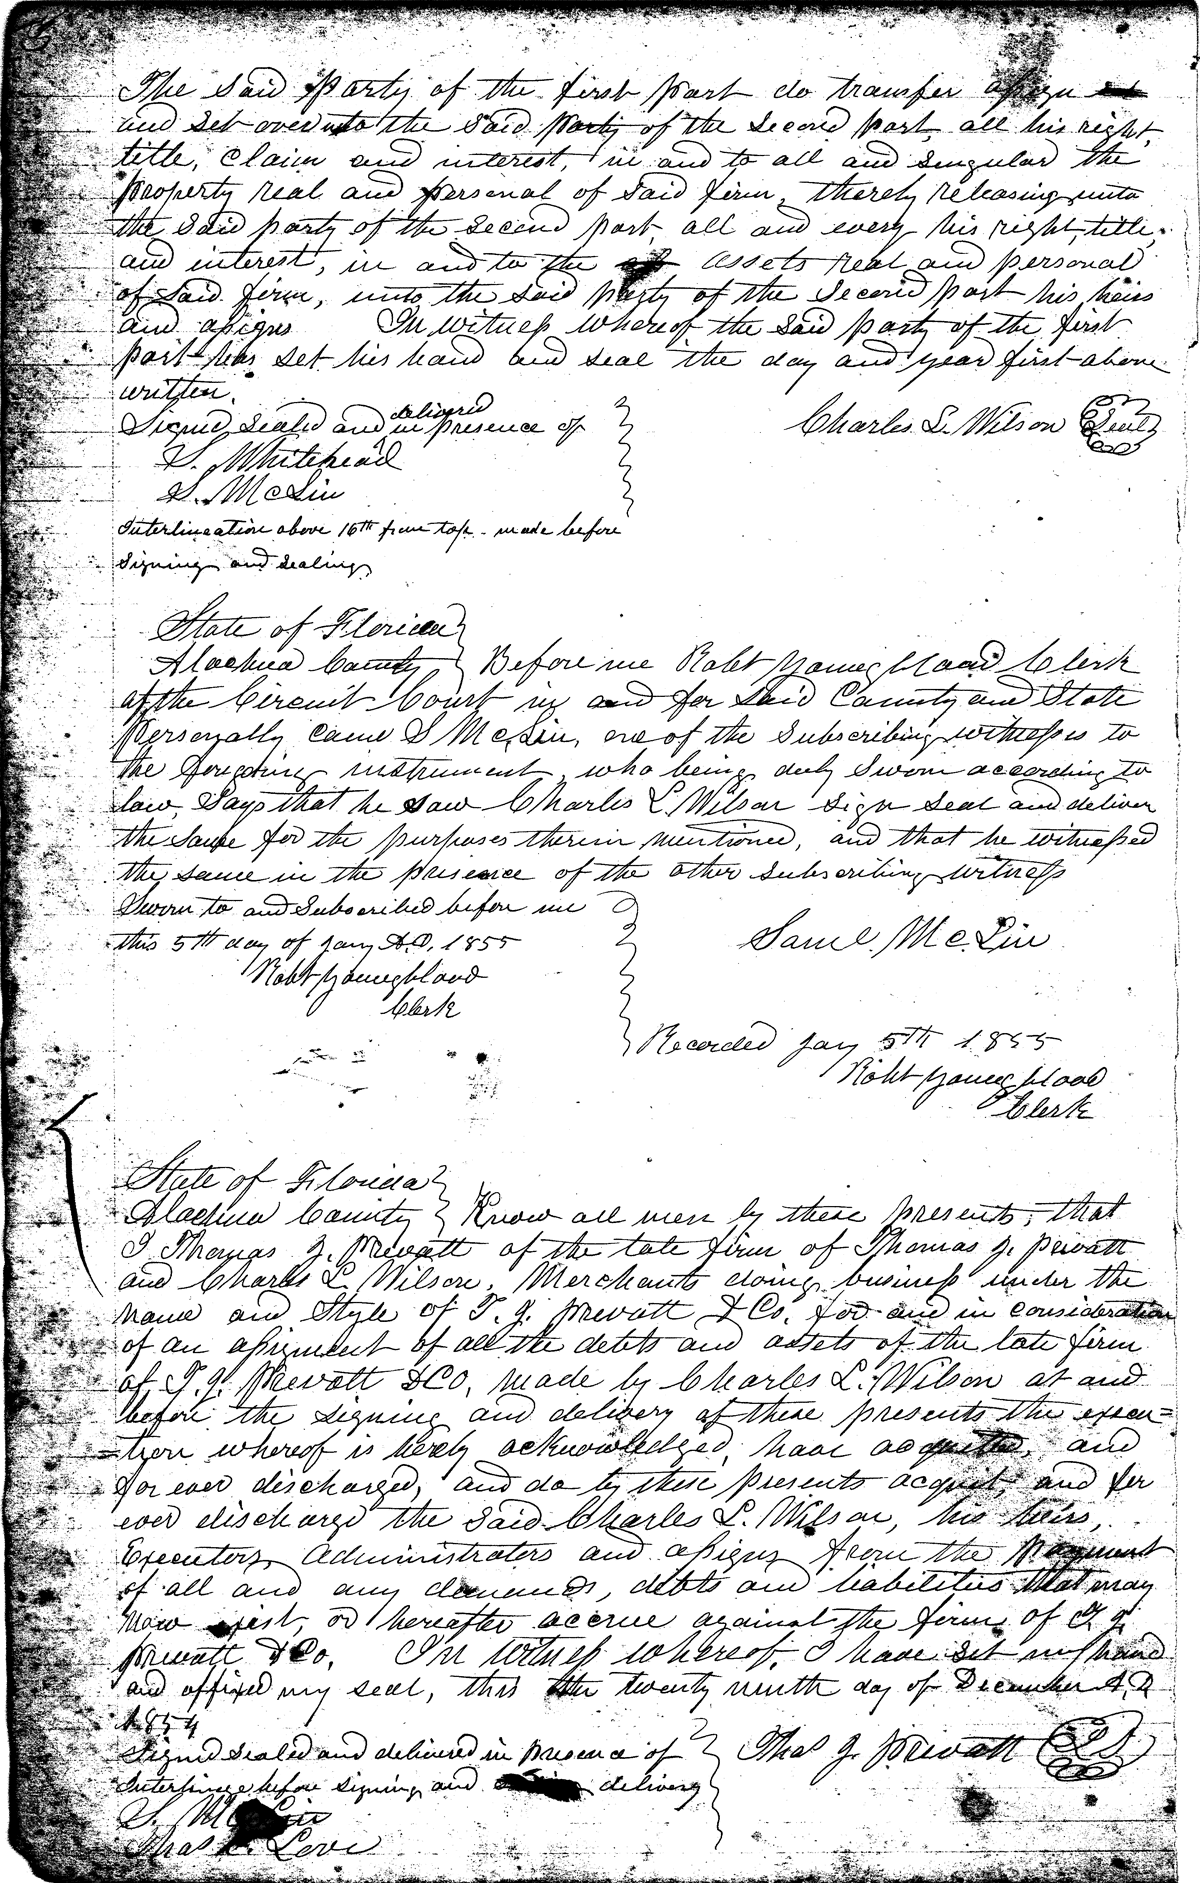 The Said Party of the first part do transfer assign
and set over unto the Said Party of the Second part, all his right,
title, claim and interest, in and to all and singular the
property real and personal of Said firm, thereby releasing unto
the Said party of the Second part, all and every his right, title,
and interest, in and to the assets real and personal
of Said firm, unto the Said party of the Second part his heirs
and assigns In witness whereof the Said party of the first
part has set his hand and seal the day and year first above
written.
Signed Sealed and delivered in presence of
Charles L. Wilson Seal
S. Whitehead
S. McLin
Interlineation above 16th from top - made before
signing and sealing
State of Florida
Alachua County Before me Robt Youngblood Clerk
of the Circuit Court in and for Said County and State
Personally came S McLin, one of the Subscribing witnesses to
the foregoing instrument, who being duly Sworn according to
law, Says that he saw Charles L. Wilson Sign Seal and deliver
the Same for the purposes therein mentioned, and that he witnessed
the same in the presence of the other subscribing witness
Sworn to and Subscribed before me
this 5th day of Jany A.D. 1855
Saml. McLin
Robt Youngblood
Clerk
Recorded Jany 5th 1855
Robt Youngblood
Clerk
State of Florida
Alachua County Know all men by these presents, that
I Thomas J. Prevatt of the late firm of Thomas J. Prevatt
and Charles L. Wilson, Merchants doing business under the
name and Style of T. J. Prevatt & Co. for and in consideration
of an assignment of all the debts and assets of the late firm
of T. J. Prevatt & Co, made by Charles L. Wilson at and
before the signing and delivery of these presents the execu=
=tion whereof is hereby acknowledged, have acquitted, and
for ever discharged, and do by these presents acquit, and for
ever discharge the Said Charles L. Wilson, his heirs,
Executors, Administrators and assigns from the payment
of all and any demands, debts and liabilities that may
now exist, or hereafter accrue against the firm of T. J.
Prevatt & Co. In witness whereof, I have set my hand
and affixed my seal, this the twenty ninth day of December A.D.
1854
Signed Sealed and delivered in presence of
Thos J. Prevatt
before signing and delivery
S. McLin